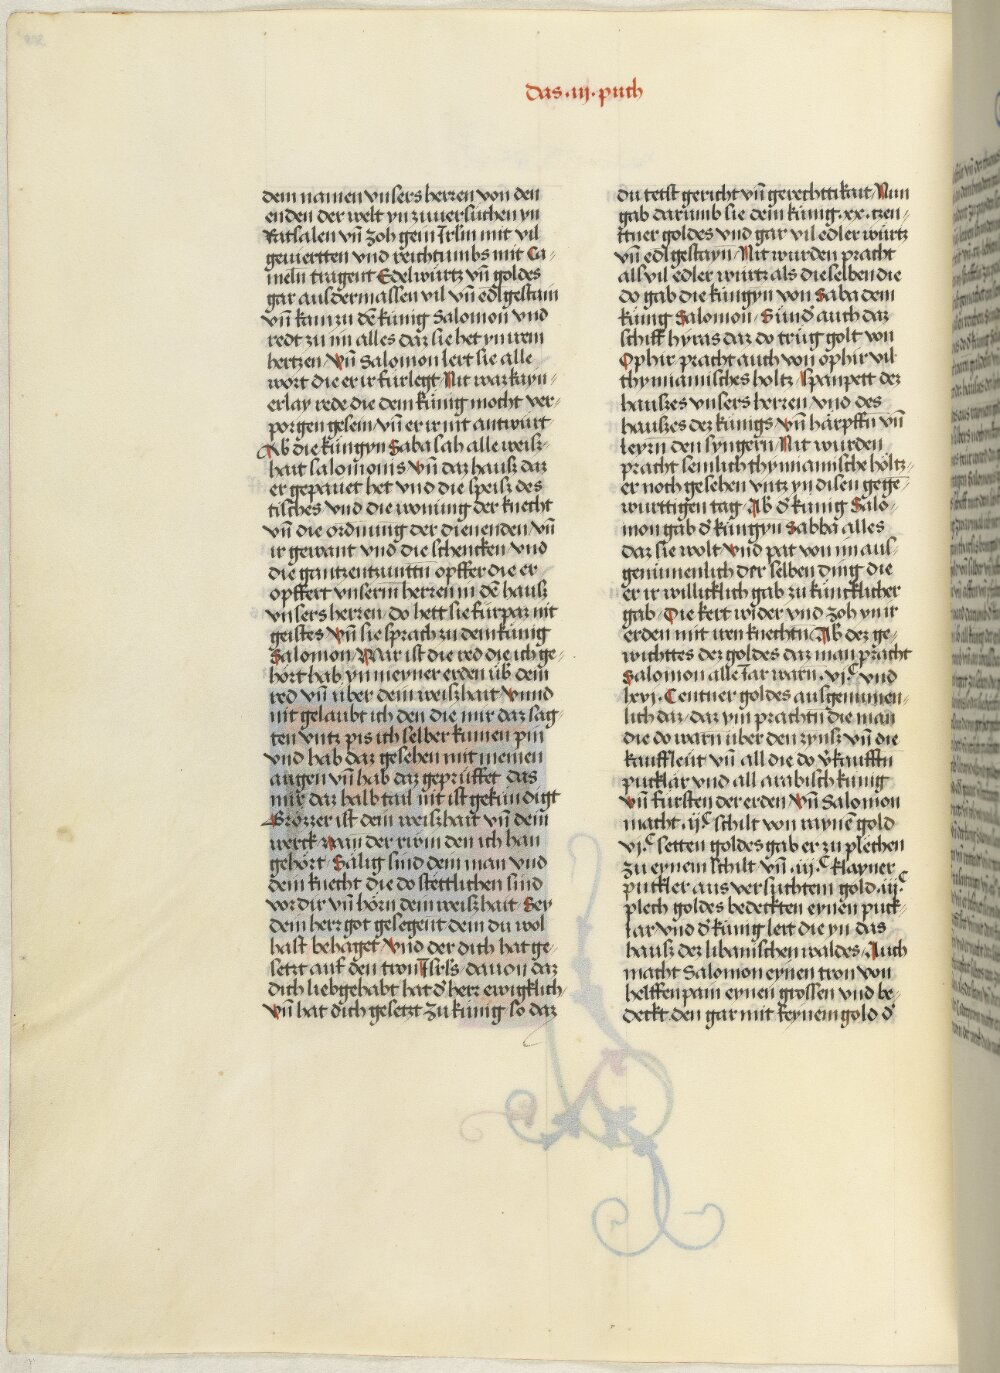 das .iij. puch
dem namen vnsers herren von den
enden der welt yn zuuersuchen yn
Ratsalen vn̄ zoh gein Irslm mit vil
geuertten vnd reichtumbs mit Ca-
meln tragent Edelwürtz vn̄ goldes
gar ausdermassen vil vn̄ edlgestain
vn̄ kam zu dē künig Salomon vnd
redt zu im alles daz sie het yn irem
hertzen Vn̄ Salomon lert sie alle
wort die er ir fürlegt Nit waz kayn-
erlay rede die dem künig mocht ver-
porgen gesein vn̄ er ir nit antwürt
Ab die küngyn Saba sah alle weisz-
hait salomonis vn̄ daz hausz daz
er gepauet het vnd die speisz des
tisches vnd die wonung der knecht
vn̄ die ordnung der dienenden vn̄
ir gewant vnd die schencken vnd
die gantzentzuntn̄ opffer die er
opffert vnserm herren in dē hausz
vnsers herren do hett sie fürpaz nit
geistes Vn̄ sie sprach zu dem künig
Salomon War ist die red die ich ge-
hört hab yn meyner erden üb̄ dein
red vn̄ über dein weiszhait Vnnd
nit gelaubt ich den die mir daz sag-
ten vntz pis ich selber kumen pin
vnd hab daz gesehen mit meinen
augen vn̄ hab daz geprüffet das
mir daz halb tail nit ist gekündigt
Grözzer ist dein weiszhait vn̄ dein
werck wan der rwm den ich han
gehört Sälig sind dein man vnd
dein knecht die do stettlichen sind
vor dir vn̄ hörn dein weiszhait Sey
dein herr got gesegent dem du wol
hast behaget Vnd der dich hat ge-
setzt auf den tron Isrls dauon daz
dich liebgehabt hat d̓ herr ewigklich
Vn̄ hat dich gesetzt zu künig so daz
du tetst gericht vn̄ gerechtikait Nun
gab darumb sie dem künig .xx. tzen-
ttner goldes vnd gar vil edler würtz
vn̄ edlgestayn Nit wurden pracht
als vil edler würtz als dieselben die
do gab die küngyn von Saba dem
künig Salomon Sund̓ auch daz
schiff hyras daz do trüg golt von
Ophir pracht auch von ophir vil
thymiamisches holtz Spanpett dez
hauszes vnsers herren vnd des
hauszes dez künigs vn̄ härpffn̄ vn̄
leyrn̄ den syngern̄ Nit wurden
pracht semlich thymiamische höltz-
er noch gesehen vntz yn disen gegē-
württigen tag Ab d̓ künig Salo-
mon gab d̓ küngyn Sabba alles
daz sie wolt vnd pat von im aus-
genumenlich der selben ding die
er ir willicklich gab zu künicklicher
gab Die kert wider vnd zoh yn ir
erden mit iren knechtn̄ Ab dez ge-
wichttes dez goldes daz man pracht
Salomon alle Iar warn̄ .vjᶜ. vnd
lxvj. Centner goldes ausgenumen-
lich daz daz ym prachtn̄ die man
die do warn̄ über den zynsz vn̄ die
kauffleüt vn̄ all die do v̓kaufftn̄
pucklär vnd all arabisch künig
Vn̄ fürsten der erden Vn̄ Salomon
macht .ijᶜ. schilt von raynē gold
vjᶜ. setten goldes gab er zu plechen
zu eynem schilt vn̄ .iijᶜ. klayner
puckler aus versuchtem gold .iijᶜ.
plech goldes bedeckten eynen puck-
lar vnd d̓ künig lert die yn das
hausz dez libanischen waldes Auch
macht Salomon eynen tron von
helffenpain eynen grossen vnd be-
deckt den gar mit feynem gold d̓